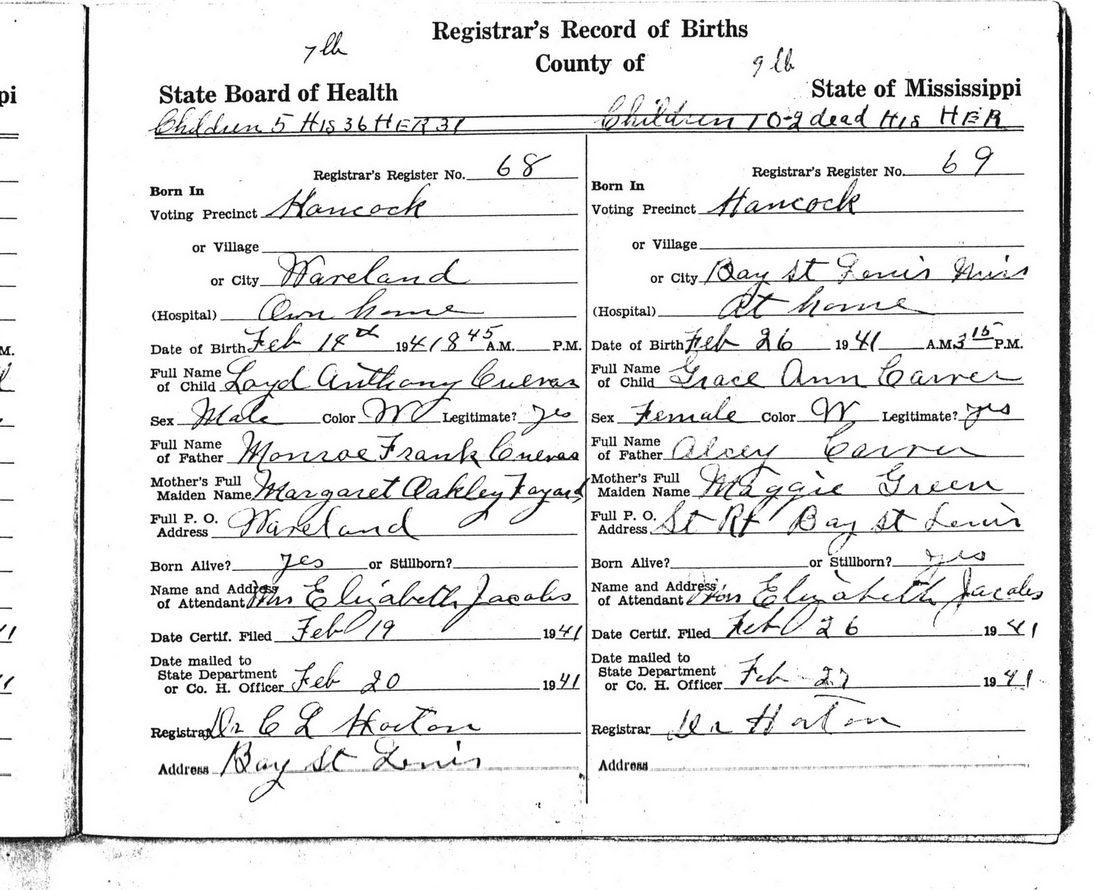 Registrar's Record of Births
7 lb
County of
9 lb
pi
State Board of Health
State of Mississippi
Children 5 HIS 36 HER 31
Children 10-2 dead HIS HER
Registrar's Register No. 68
Born In
Voting Precinct Hancock
or Village
or City Waveland
(Hospital) Own home
Date of Birth Feb 18th 1941 8 45 A.M. P.M.
Full Name
of Child Loyd Anthony Cuevas
Sex Male Color W Legitimate? yes
Full Name
of Father Monroe Frank Cuevas
Mother's Full
Maiden Name Margaret Oakley Fayard
Full P. O.
Address Waveland
Born Alive? yes or Stillborn?
Name and Address
of Attendant Mrs Elizabeth Jacobs
Date Certif. Filed Feb 19 1941
Date mailed to
State Department
or Co. H. Officer Feb 20 1941
Registrar Dr C L Horton
Address Bay St Louis
Registrar's Register No. 69
Born In
Voting Precinct Hancock
or Village
or City Bay St Louis Miss
(Hospital) At home
Date of Birth Feb 26 1941 A.M. 3 15 P.M.
Full Name
of Child Grace Ann Carver
Sex Female Color W Legitimate? yes
Full Name
of Father Alcey Carver
Mother's Full
Maiden Name Maggie Green
Full P. O.
Address St Rt Bay St Louis
Born Alive? or Stillborn? yes
Name and Address
of Attendant Mrs Elizabeth Jacobs
Date Certif. Filed Feb 26 1941
Date mailed to
State Department
or Co. H. Officer Feb - 27 1941
Registrar Dr Horton
Address